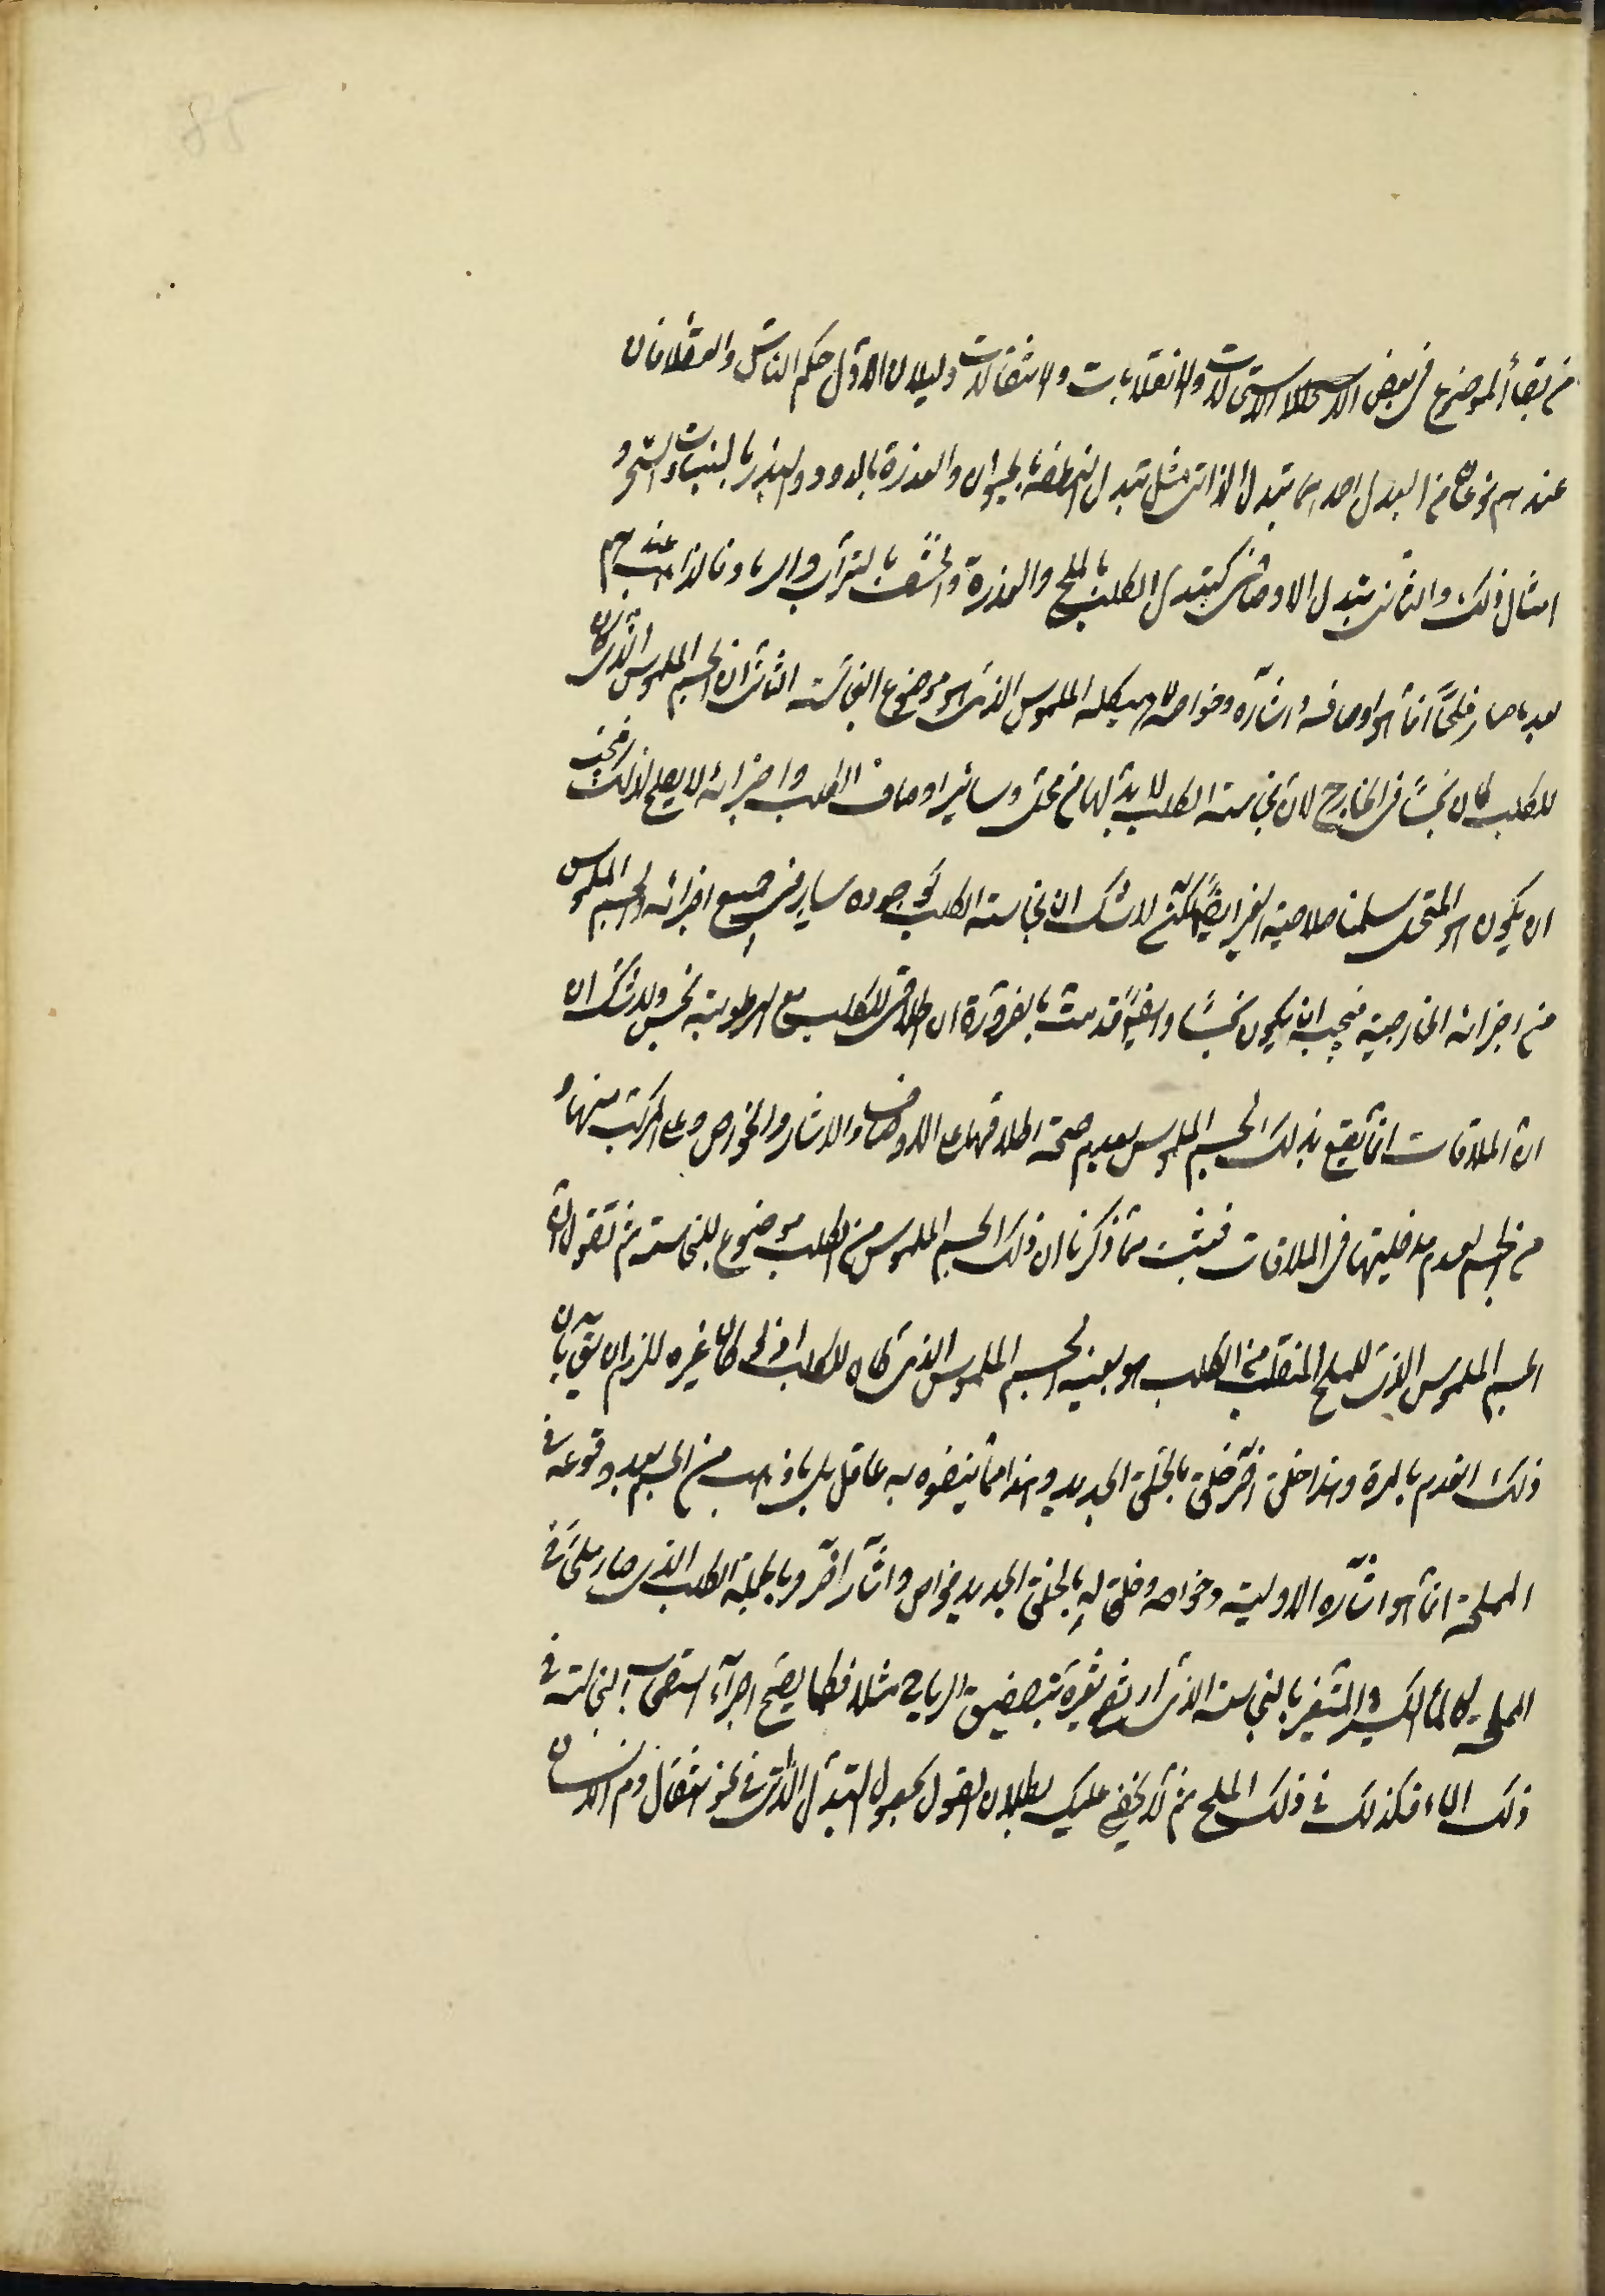 85
من بقاء الموضوع في بعض الاستحالات والانقلابات والانتقالات دليلان الاول حكم الناس والعقلا فان
عندهم نوعان من البدل احدهما تبدل الذاتي مثل تبدل النطفة بالحيوان والعذرة بالدود والبذر بالنبات والشجر و
امثال ذلك والثاني تبدل الاوصافي كتبدل الكلب بالملح والعذرة والخشب بالتراب والرماد فالذاهب عندهم
بعد ما صار ملحًا انما هو اوصافه واثاره وخواصه لا هيكله الملموس الذي هو موضوع النجاسة الثاني ان الجسم الملموس الذي كان
للكلب كان نجسًا في الخارج لان نجاسة الكلب لا بد لها من محل وسائر اوصاف الكلب واجزائه لا يصلح لذلك فيجب
ان يكون هو المحل سلمنا صلاحية الغير ايضًا لكنه لا شك ان نجاسة الكلب موجوده ساير في جميع اجزائه والجسم الملموس
من اجزائه الخارجية فيجب ان يكون نجسًا وايضًا قد ثبت بالضرورة ان الملاقي للكلب مع الرطوبة نجس ولا شك ان
ان الملاقات انما يقع بذلك الجسم الملموس لعدم صحة اطلاقها على الاوصاف والاثار والخواص وعلى المركب منها و
من الجسم لعدم مدخليتها في الملاقات فثبت مما ذكرنا ان ذلك الجسم الملموس من الكلب موضوع للنجاسة ثم نقول ان
الجسم الملموس الذي للملح المنقلب من الكلب هو بعينه الجسم الملموس الذي كان للكلب اذ لو كان غيره للزم ان يق بان
ذلك انعدم بالمرة وهذا خلق اخر خلق بالخلق الجديد وهذا مما يتفوه به عاقل بل ما ذهب من الجسم بعد وقوعه في
المملحة انما هو اثاره الاولية وخواصه وخلق له بالخلق الجديد خواص واثار اخر وبالجملة الكلب الذي صار ملحًا في
المملحة كالماء الكثير المتغير بالنجاسة الذي ارتفع تغيره بتصفيق الرياح مثلا فكما يصح اجراء استصحاب النجاسة في
ذلك الماء فكذلك في ذلك الملح ثم لا يخفى عليك بطلان القول بحصول التبدل الذاتي في نحو انتقال دم الانسان